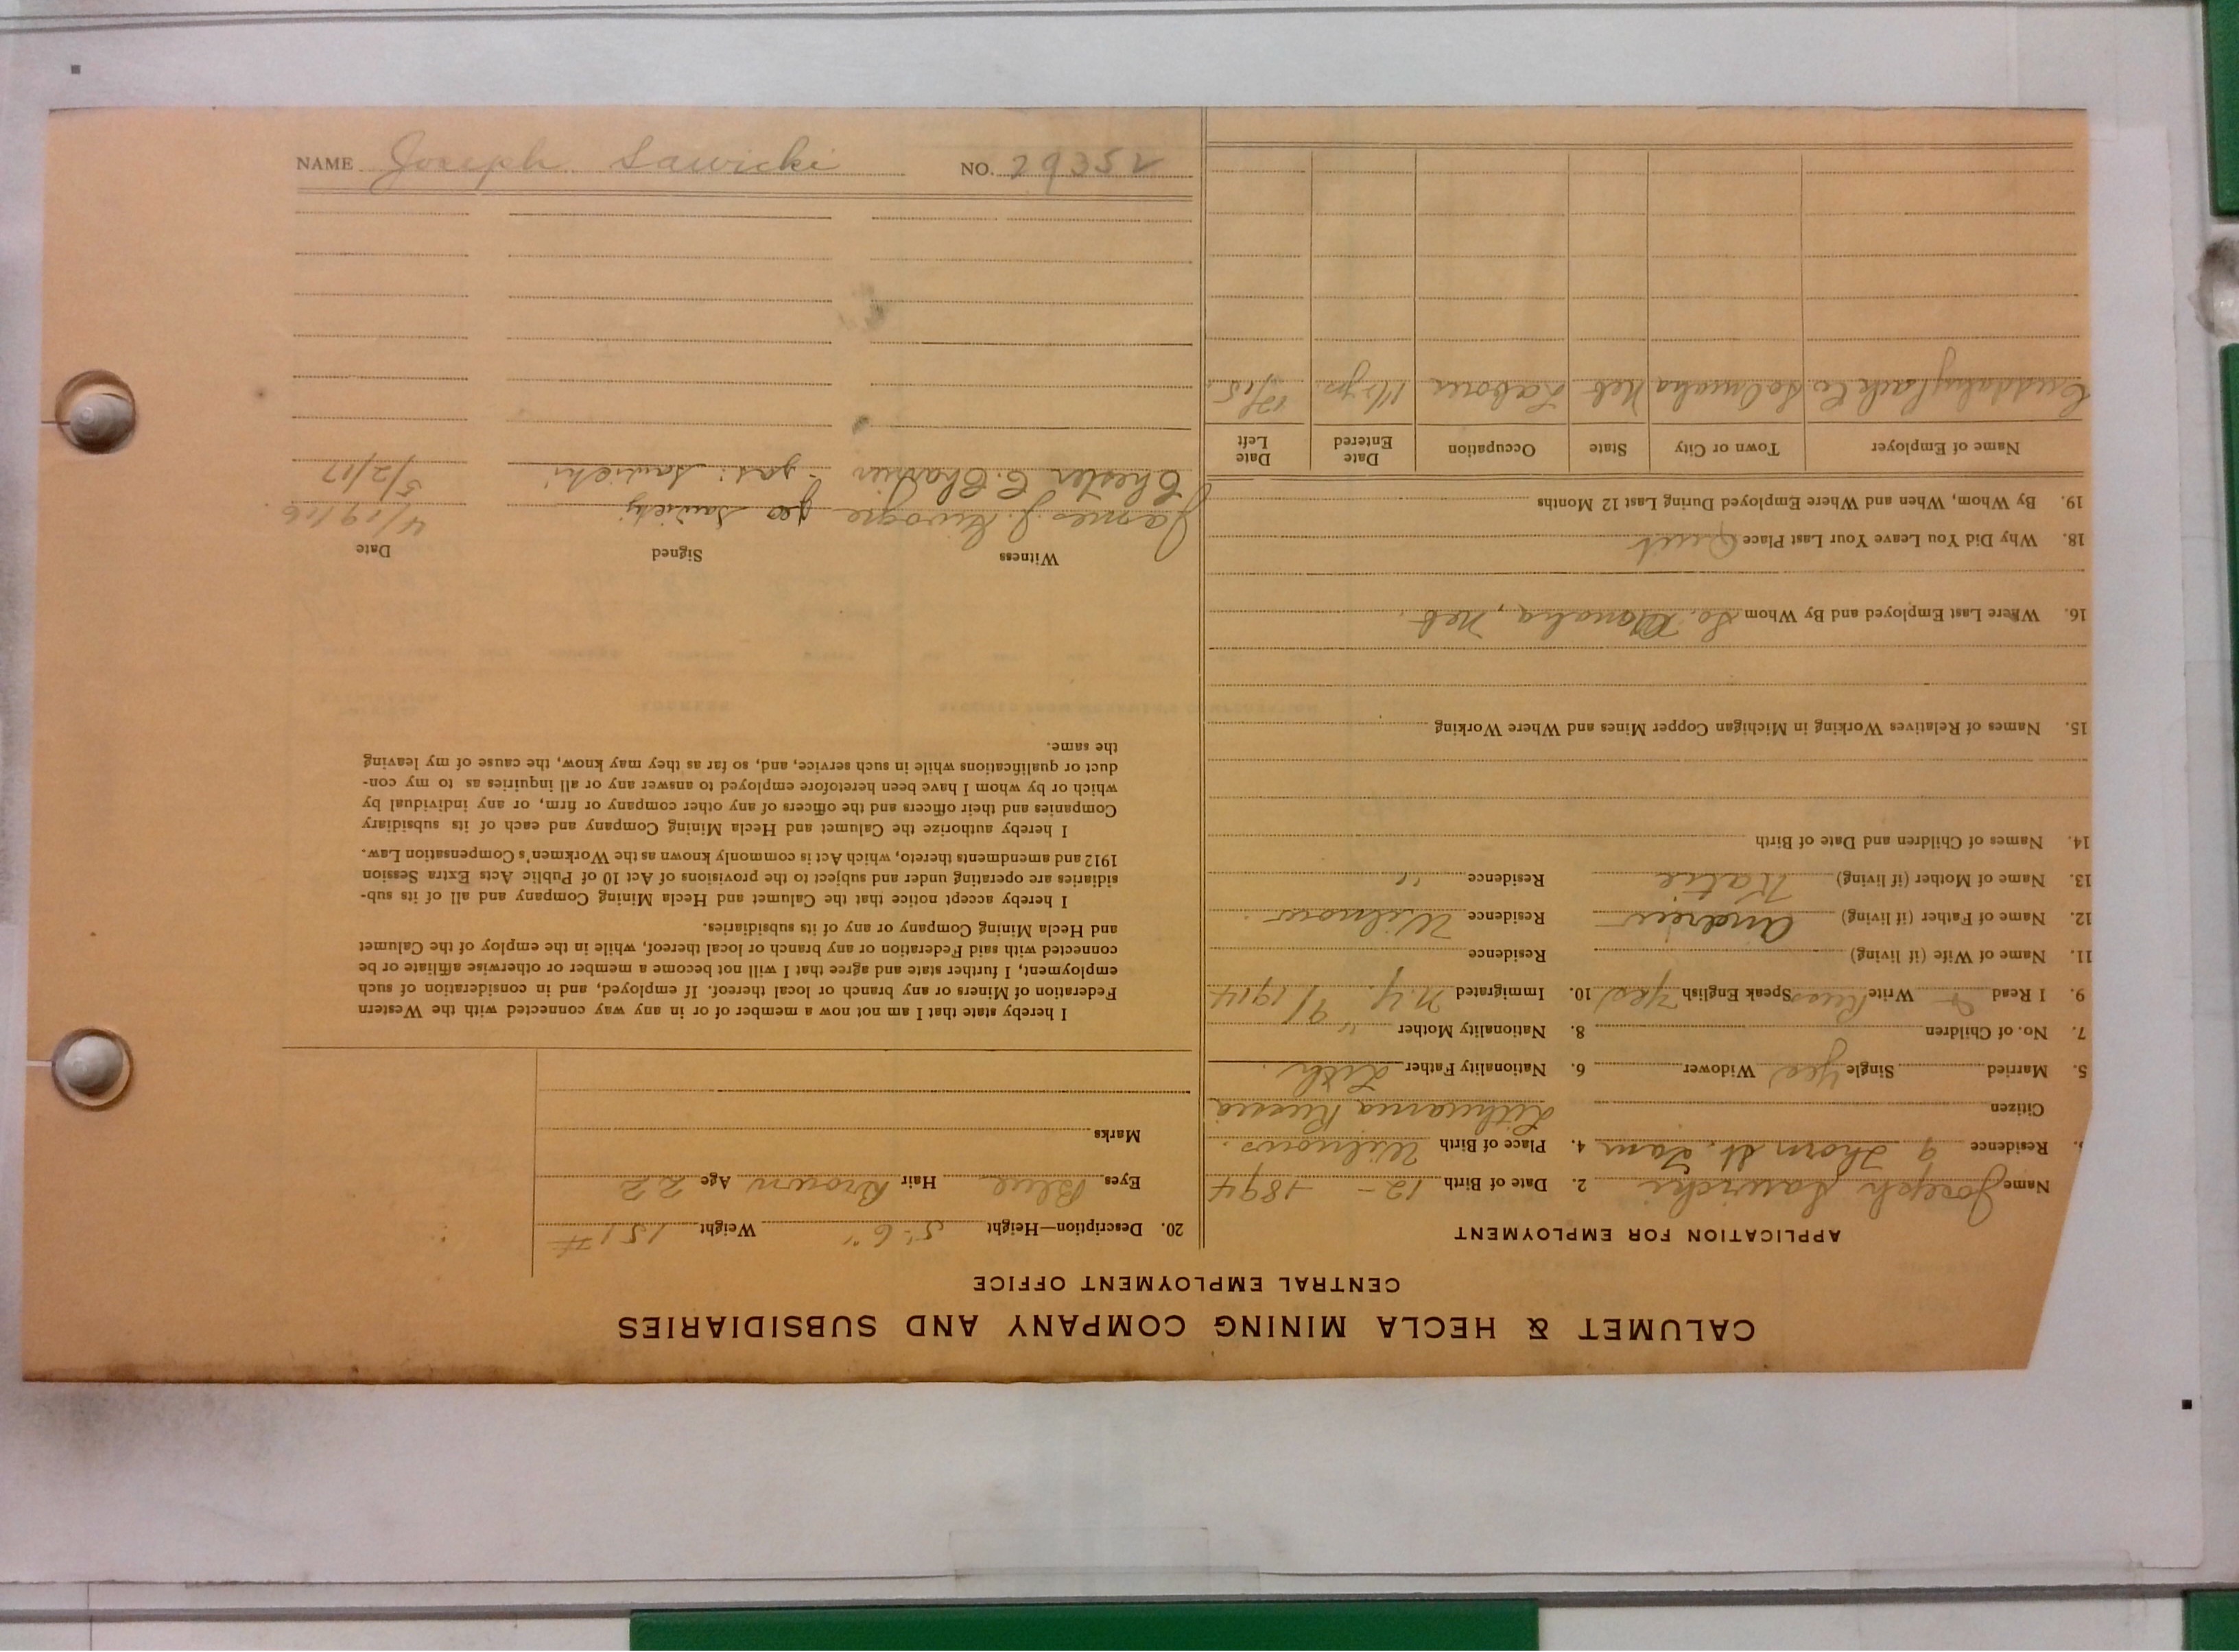 CALUMET & HECLA MINING COMPANY AND SUBSIDIARIES
CENTRAL EMPLOYMENT OFFICE
APPLICATION FOR EMPLOYMENT
Name Joseph Sawicki 2. Date of Birth 12 - 1894
Residence 9 Thorn St. Lam 4. Place of Birth Wilnows.
Citizen Lithuania Russia
5. Married Single Yes Widower 6. Nationality Father Lith.
7. No. of Children 8. Nationality Mother "
9. I Read & Write Russ Speak English Yes 10. Immigrated N.Y. 9/1914
11. Name of Wife (if living) Residence
12. Name of Father (if living) Andrew Residence Wilnows.
13. Name of Mother (if living) Katie Residence "
14. Names of Children and Date of Birth
15. Names of Relatives Working in Michigan Copper Mines and Where Working
16. Where Last Employed and By Whom So. Omaha, Neb.
18. Why Did You Leave Your Last Place Quit
19. By Whom, When and Where Employed During Last 12 Months
Name of Employer Town or City State Occupation Date Entered Date Left
Cuddahy Pack Co So Omaha Neb Laborer 1 1/2 yrs.
20. Description—Height 5-6" Weight 151 #
Eyes Blue Hair Brown Age 22
Marks
I hereby state that I am not now a member of or in any way connected with the Western
Federation of Miners or any branch or local thereof. If employed, and in consideration of such
employment, I further state and agree that I will not become a member or otherwise affiliate or be
connected with said Federation or any branch or local thereof, while in the employ of the Calumet
and Hecla Mining Company or any of its subsidiaries.
I hereby accept notice that the Calumet and Hecla Mining Company and all of its sub-
sidiaries are operating under and subject to the provisions of Act 10 of Public Acts Extra Session
1912 and amendments thereto, which Act is commonly known as the Workmen's Compensation Law.
I hereby authorize the Calumet and Hecla Mining Company and each of its subsidiary
Companies and their officers and the officers of any other company or firm, or any individual by
which or by whom I have been heretofore employed to answer any or all inquiries as to my con-
duct or qualifications while in such service, and, so far as they may know, the cause of my leaving
the same.
Witness Signed Date
James J. Sawicki 4/19/16.
Chester C. Jos. Sawicki 5/2/17
NAME Joseph Sawicki NO. 29352